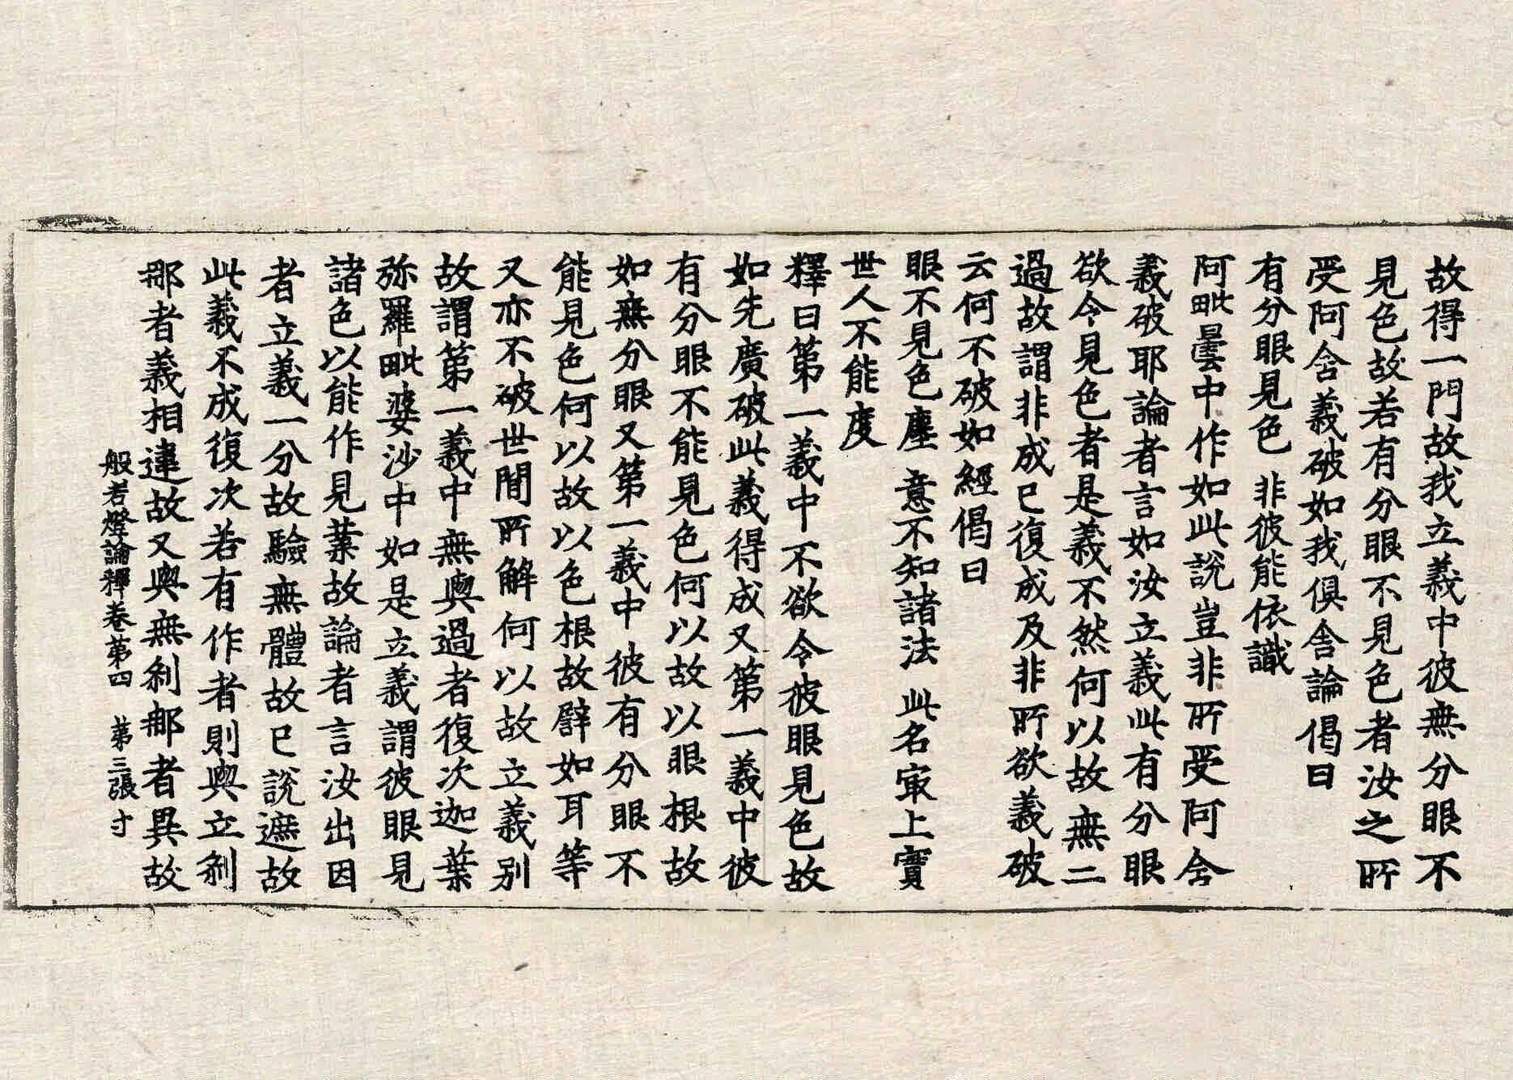 故得一門故我立義中彼無分眼不
見色故若有分眼不見色者汝之所
受阿含義破如我俱舍論偈曰
有分眼見色　非彼能依識
阿毗曇中作如此說豈非所受阿含
義破耶論者言如汝立義此有分眼
欲令見色者是義不然何以故無二
過故謂非成已復成及非所欲義破
云何不破如經偈曰
眼不見色塵　意不知諸法　此名㝡上實
世人不能度
釋曰第一義中不欲令彼眼見色故
如先廣破此義得成又第一義中彼
有分眼不能見色何以故以眼根故
如無分眼又第一義中彼有分眼不
能見色何以故以色根故譬如耳等
又亦不破世間所解何以故立義別
故謂第一義中無與過者復次迦葉
弥羅毗婆沙中如是立義謂彼眼見
諸色以能作見葉故論者言汝出因
者立義一分故驗無體故已說遮故
此義不成復次若有作者則與立剎
那者義相違故又與無剎那者異故
般若燈論釋卷第四　第三張　寸